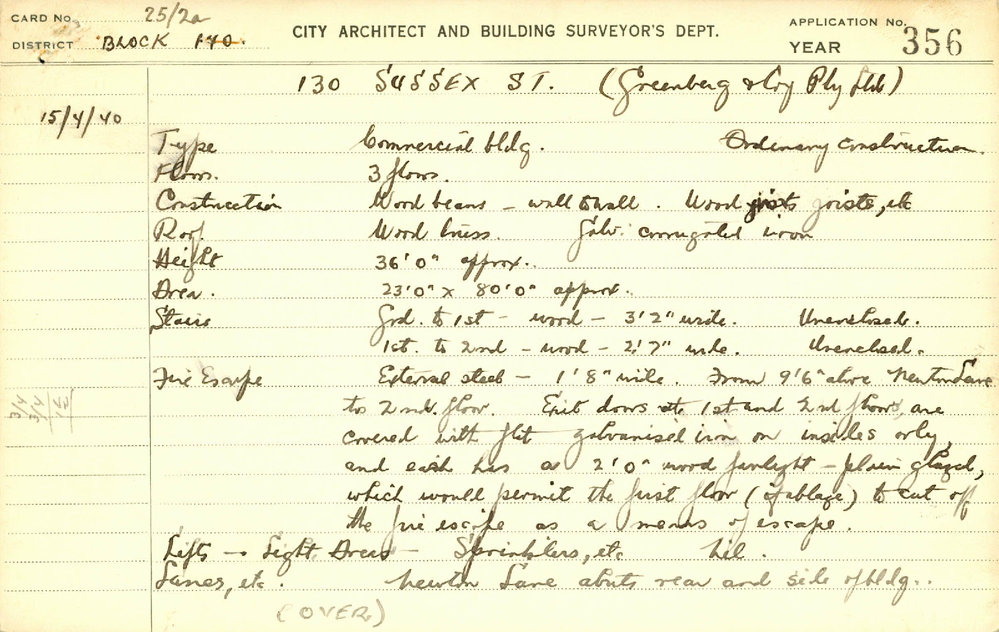 CARD No. 25/2a
DISTRICT BLOCK 140.
CITY ARCHITECT AND BUILDING SURVEYOR'S DEPT.
APPLICATION No.
YEAR 356
130 SUSSEX ST. (Greenberg & Coy Pty Ltd)
15/4/40
Type Commercial bldg. Ordinary construction.
Floors. 3 floors.
Construction Wood beams - wall to wall. Wood joists joists, etc
Roof. Wood truss. Galv. corrugated iron
Height 36'0" approx.
Area. 23'0" x 80'0" approx.
Stairs Grd. to 1st - wood - 3'2" wide. Unenclosed.
1st. to 2nd - wood - 2'7" wide. Unenclosed.
Fire Escape External steel - 1'8" wide. From 9'6" above Newton Lane
to 2nd. floor. Exit doors at 1st and 2nd floors, are
covered with flat galvanised iron on insides only,
and each has a 2'0" wood fanlight - plain glazed,
which would permit the first floor (if ablaze) to cut off
the fire escape as a means of escape.
Lifts - Light Areas - Sprinklers, etc Nil.
Lanes, etc. Newton Lane abuts rear and side of bldg.
(OVER)
3/4
3/4